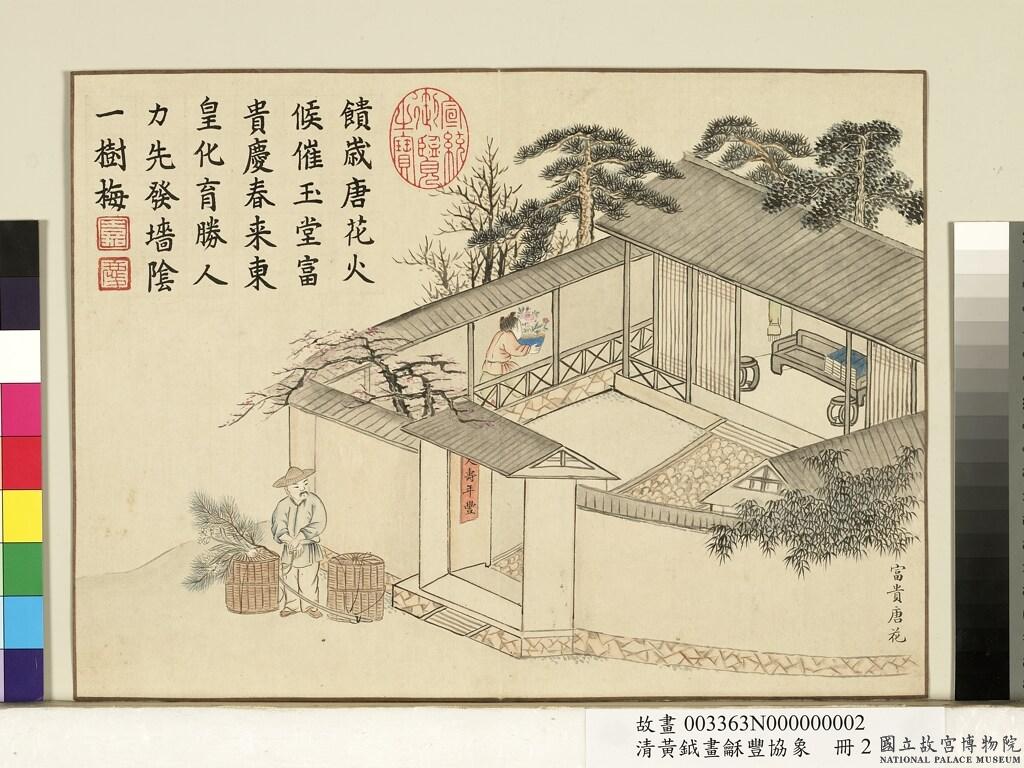 饋歲唐花火
候催玉堂富
貴慶春来東
皇化育勝人
力先發墻陰
一樹梅
宣統
御覽
之寶
人壽年豐
富貴唐花
故畫 003363N000000002
清黃鉞畫龢豐協象 冊 2
國立故宮博物院
NATIONAL PALACE MUSEUM